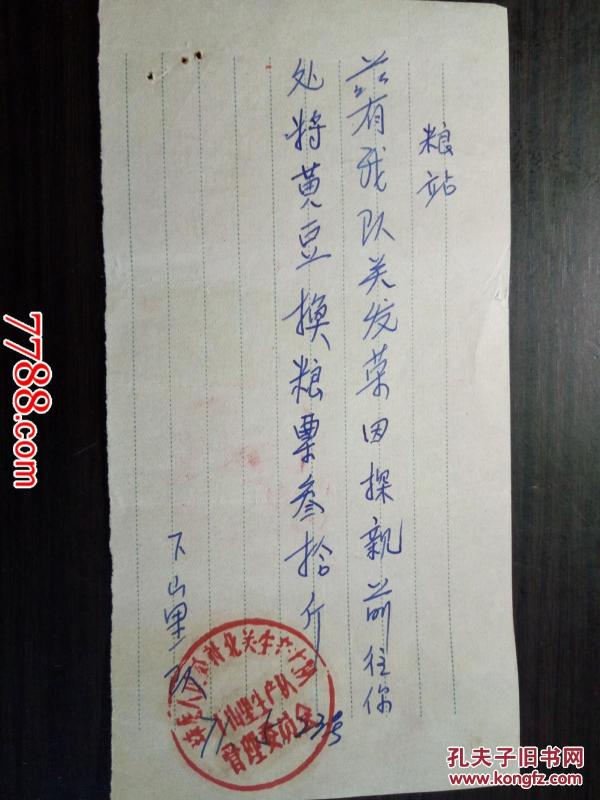 粮站
兹有我队关发菜因探亲前往你
处将黄豆换粮票叁拾斤
下山里队
77 23号
下山里生产队
管理委员会
7788.com
孔夫子旧书网
www.kongfz.com